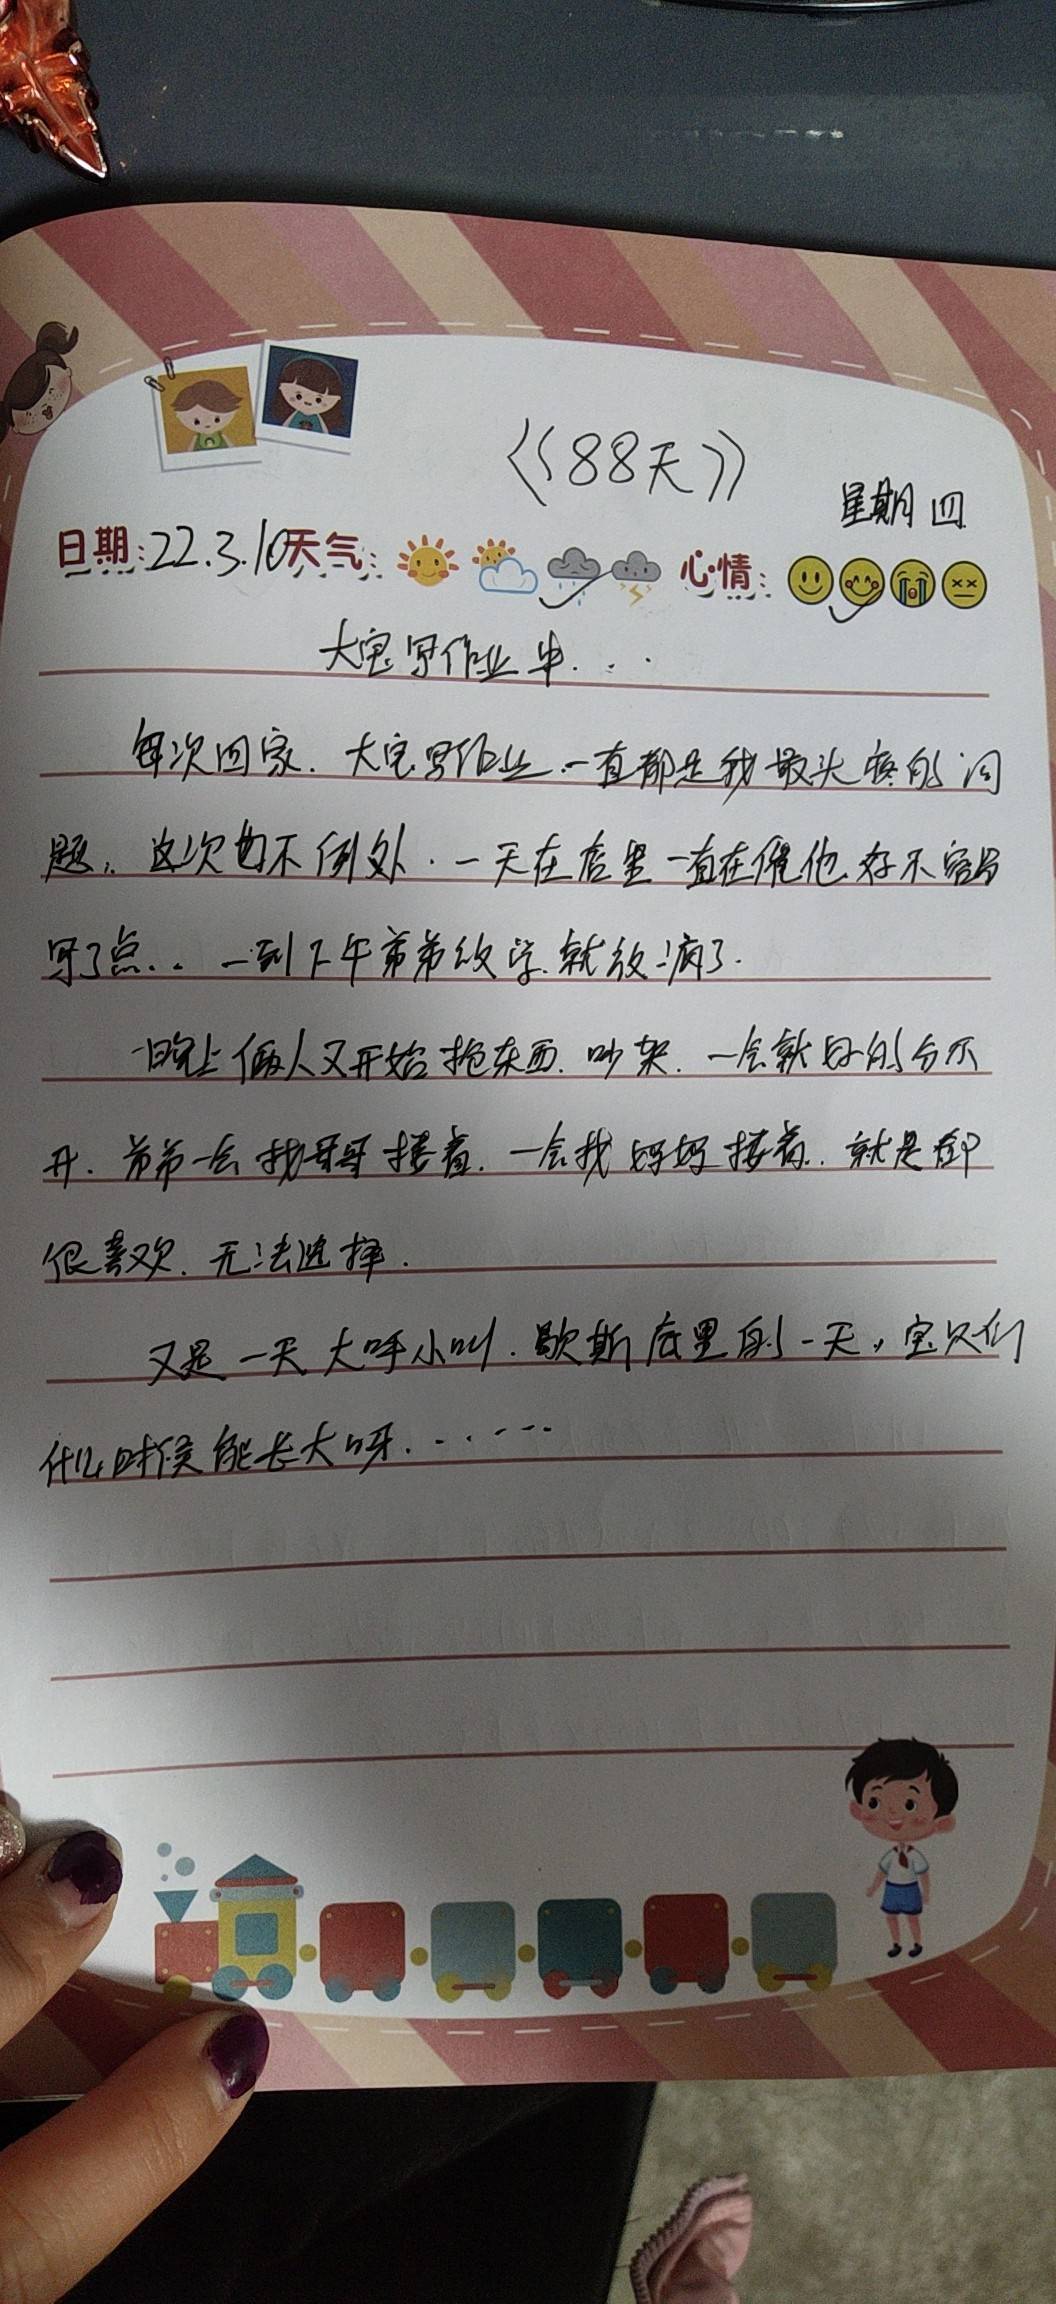 《88天》
星期四
日期:22.3.10天气: 心情:
大宝写作业中...
每次回家.大宝写作业.一直都是我最头疼的问
题,.这次也不例外.一天在店里一直在催他.好不容易
写了点..一到下午弟弟放学.就放疯了.
晚上俩人又开始抢东西.吵架.一会就好的分不
开.弟弟一会找哥哥搂着.一会找妈妈搂着..就是都
很喜欢.无法选择.
又是一天大呼小叫.歇斯底里的一天,宝贝们
什么时候能长大呀.......